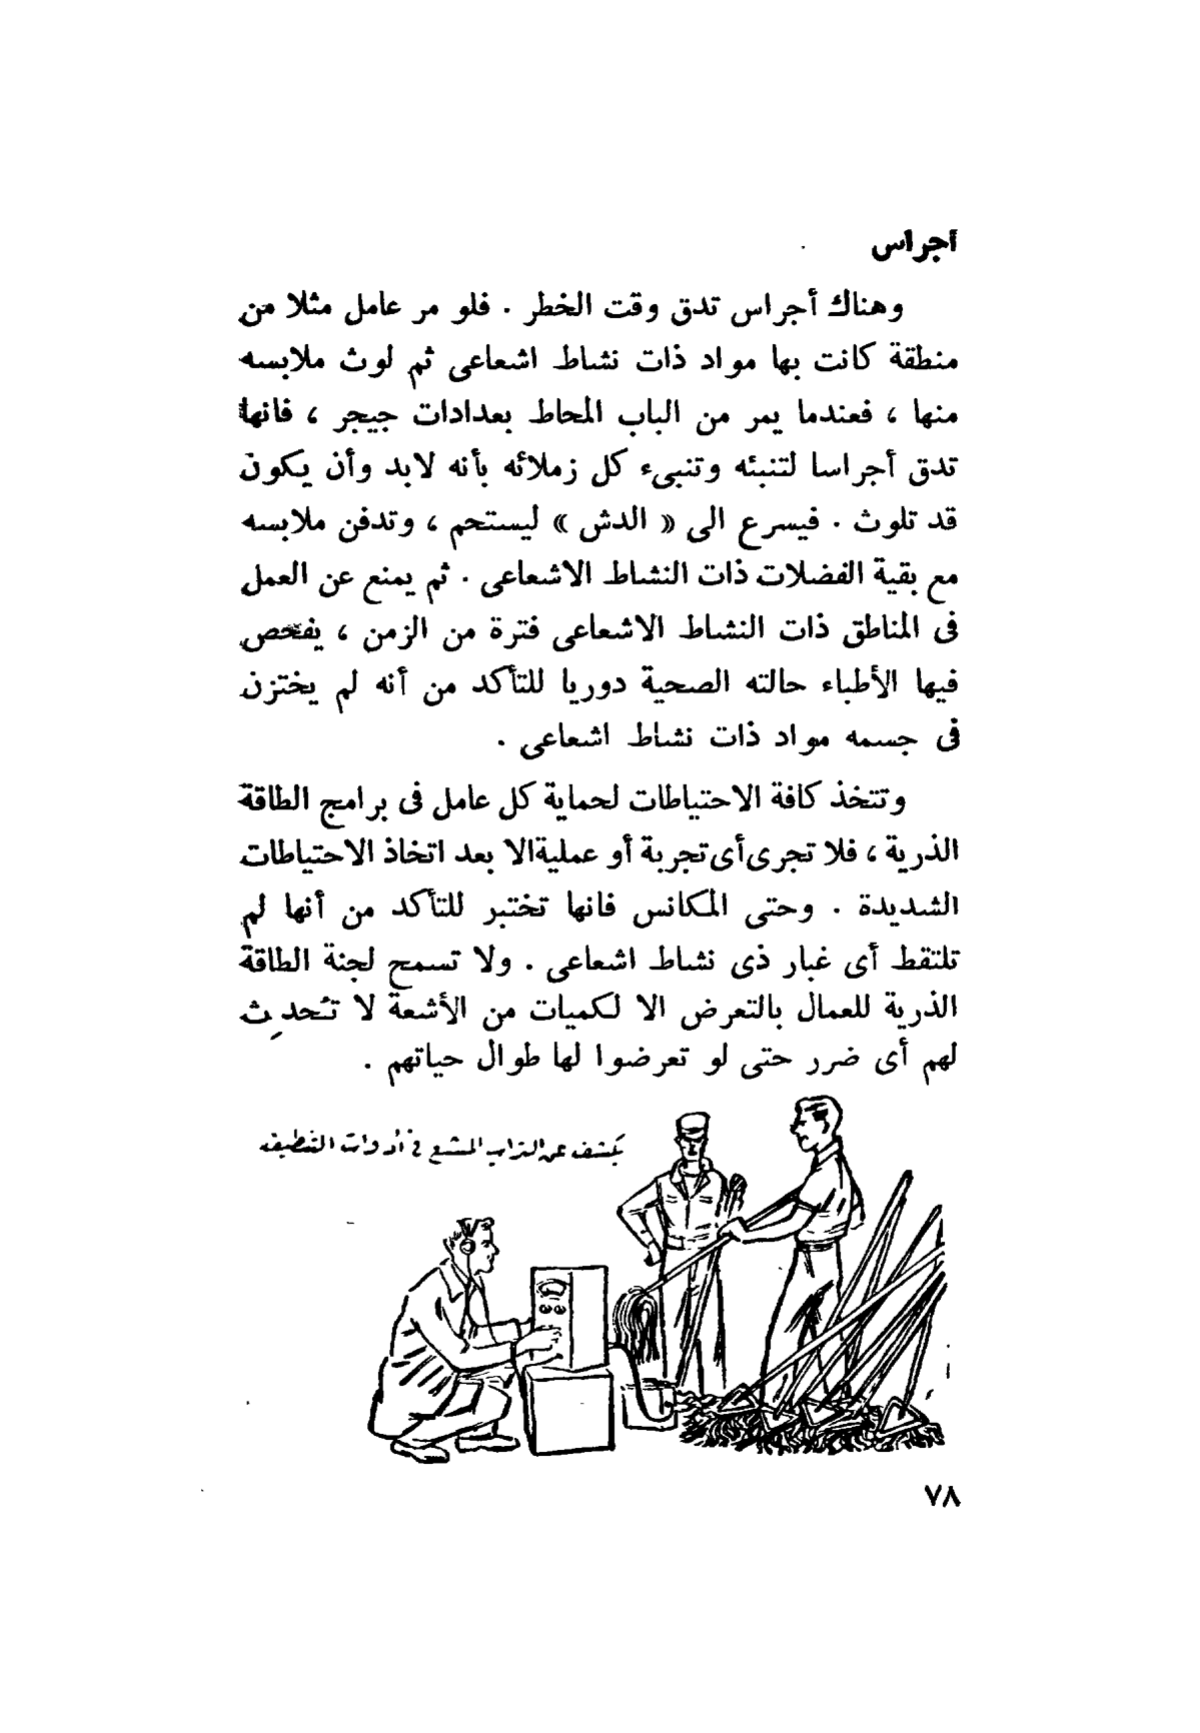 أجراس
وهناك أجراس تدق وقت الخطر . فلو مر عامل مثلا من
منطقة كانت بها مواد ذات نشاط اشعاعى ثم لوث ملابسه
منها ، فعندما يمر من الباب المحاط بعدادات جيجر ، فانها
تدق أجراسا لتنبئه وتنبىء كل زملائه بأنه لابد وأن يكون
قد تلوث . فيسرع الى « الدش » ليستحم ، وتدفن ملابسه
مع بقية الفضلات ذات النشاط الاشعاعى . ثم يمنع عن العمل
فى المناطق ذات النشاط الاشعاعى فترة من الزمن ، يفحص
فيها الأطباء حالته الصحية دوريا للتأكد من أنه لم يختزن
فى جسمه مواد ذات نشاط اشعاعى .
وتتخذ كافة الاحتياطات لحماية كل عامل فى برامج الطاقة
الذرية ، فلا تجرى أى تجربة أو عملية الا بعد اتخاذ الاحتياطات
الشديدة . وحتى المكانس فانها تختبر للتأكد من أنها لم
تلتقط أى غبار ذى نشاط اشعاعى . ولا تسمح لجنة الطاقة
الذرية للعمال بالتعرض الا لكميات من الأشعة لا تُحدِث
لهم أى ضرر حتى لو تعرضوا لها طوال حياتهم .
يكشف عن التراب المشع في أدوات التنظيف
٧٨